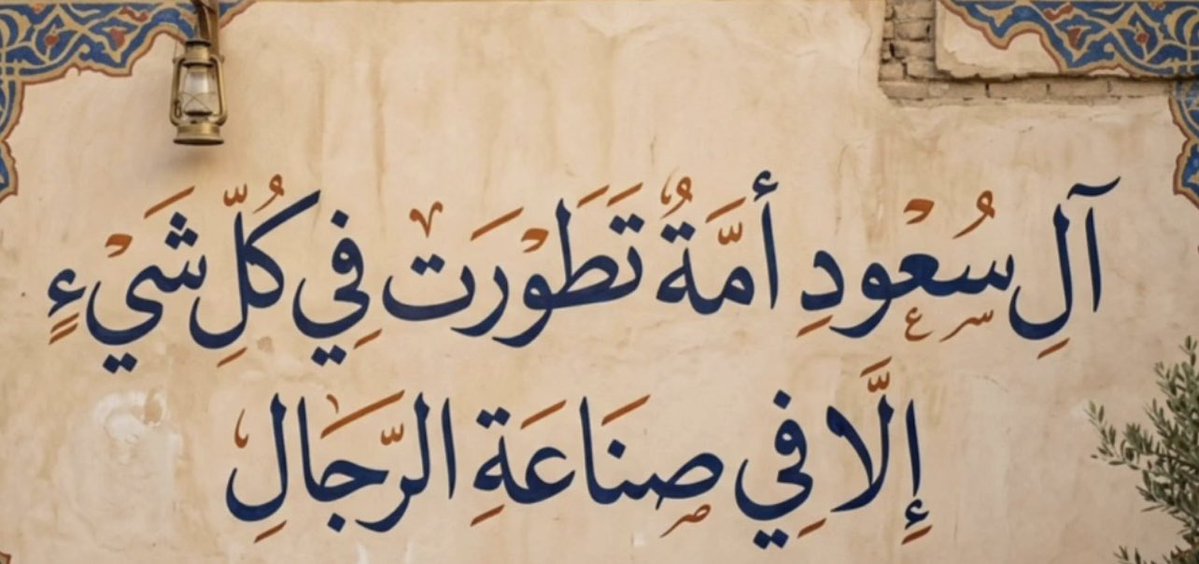 آلِ سُعْودِ أُمَّةٌ تَطَوْرَتْ فِي كُلِّ شَيْءٍ
إِلَّا فِي صِنَاعَةِ الرِّجَالِ